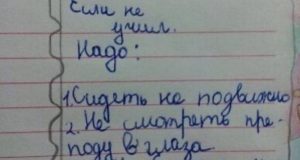 Если не
учил.
Надо:
1. Сидеть не подвижно
2. Не смотреть пре-
поду в глаза